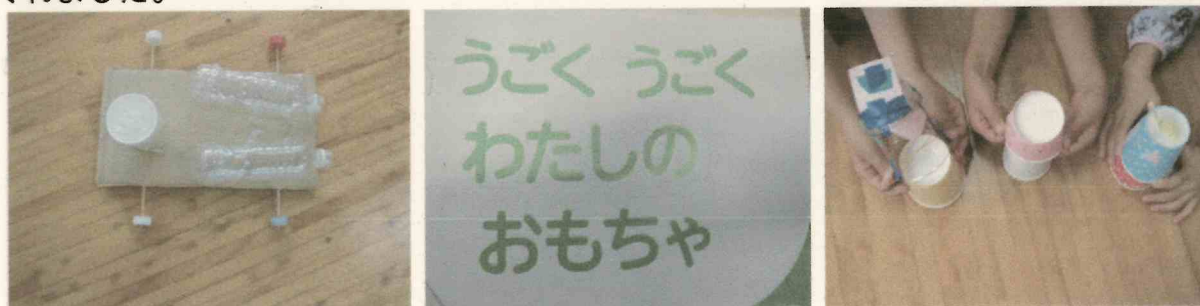 ました。
うごく うごく
わたしの
おもちゃ